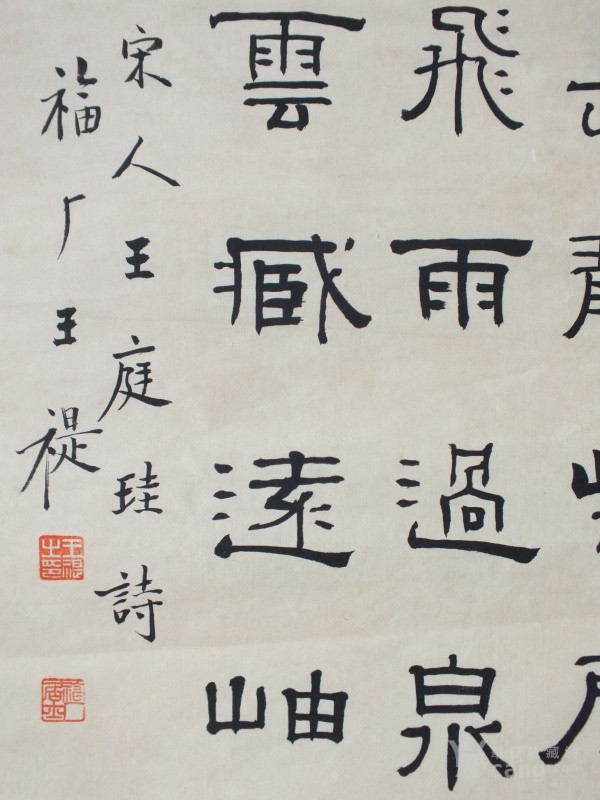 飛雨過泉
雲臧遠岫
宋人王庭珪詩
福厂王禔
王禔之印
福厂居士